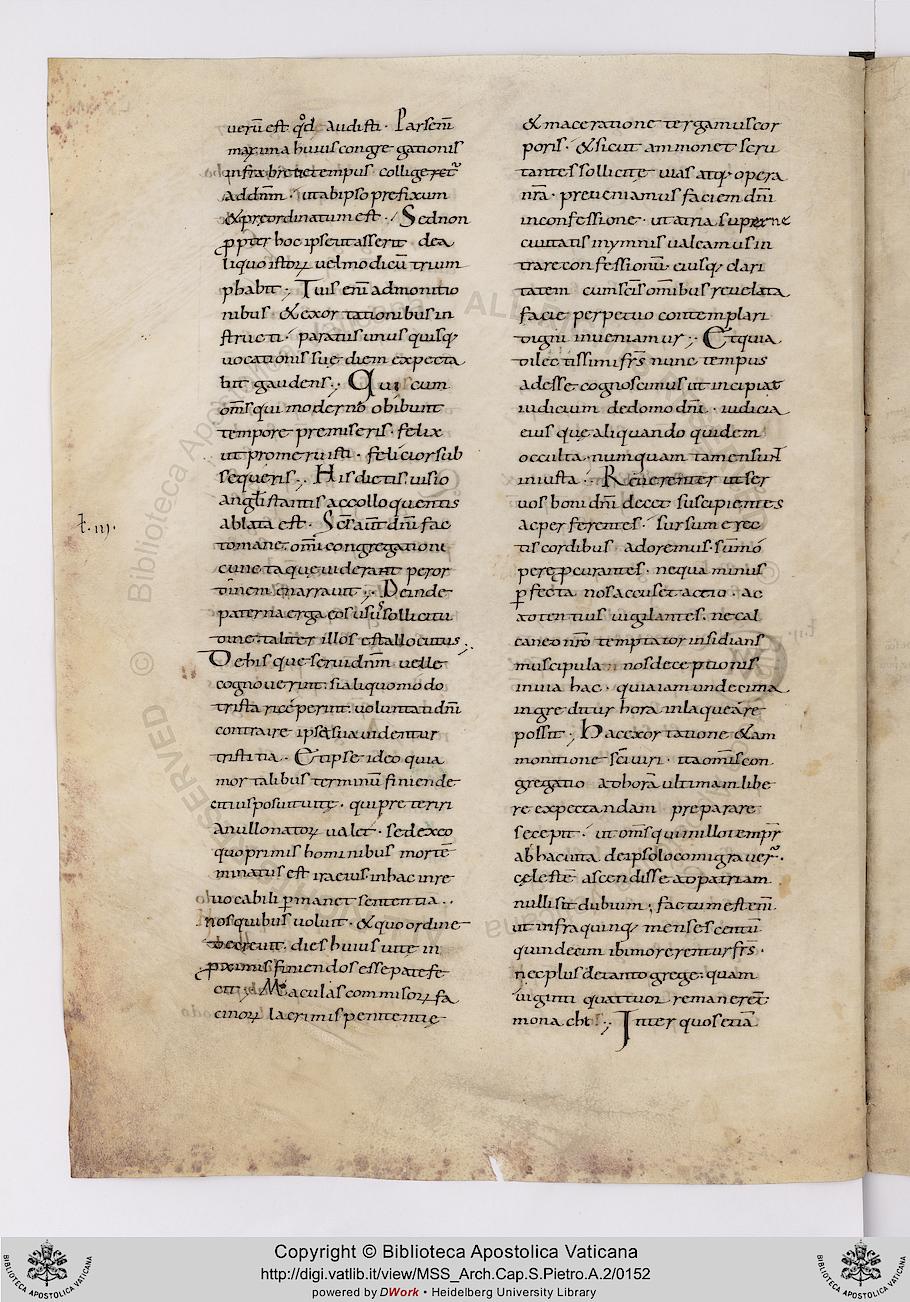 ueru᷒ est qd̊ audisti · Parsem̄
maxima huius congregationis
infra breue tempus · colligeret᷑
addnm̄ · ut ab ipso prefixum
& preordinatum est ·, Sed non
ꝓpter hoc ipse ut asserit dea
liquo istoꝝ uel modicū trium
phabit ·, Tuis em̄ admonitio
nibus · & exortationibus in
structi · paratus unus quisq;
uocationis suę diem expecta
bit gaudens ·, Qui cum
om̄s qui moderno obibunt
tempore premiseris · felix
ut promeruisti · felicior sub
sequeris ·, His dictis · uisio
angl̄i stantis accolloquentis
ablata est · Sc̄s aūt dn̄i fac
to mane · om̄i congregationi
cuncta que uiderant per or
dinem enarrauit ·, Deinde
paterna erga eos usus sollicitu
dine · taliter illos est allocutus ·,
De his que serui dn̄m uelle
cognouerunt · si aliquomodo
tristari ceperint · uoluntati dn̄i
contraire ipsa sua uidentur
tristitia · Et ipse ideo quia
mortalibus terminū finiende
citius posuit uitę · qui preteriri
a nullo natoꝝ ualet · sed ex eo
quo primis hominibus mortē
minatus est iraeius · in hac inre
uocabili ꝑmanet sententia ·
nos quibus uoluit · & quo ordine
decreuit · dies huius uite in
ꝓximis finiendos esse patefe
cit ·, Maculas commisoꝝ fa
cinoꝝ lacrimis penitentię
& maceratione tergamus cor
poris · & sicut ammonet scru
tantes sollicite uias atq; opera
nr̄a · preueniamus faciem dn̄i
in confessione · ut atria superne
ciuitatis in ymnis ualeamus in
trare confessionū · eiusq; clari
tatem cum sc̄is om̄ibus reuelata
facie perpetuo contemplari
digni inueniamur ·, Et quia
dilectissimi fr̄s nunc tempus
adesse cognoscimus ut incipiat
iudicium de domo dn̄i · iudicia
eius quę aliquando quidem
occulta · numquam tamen sunt
iniusta · Reuerenter ut ser
uos boni dn̄i decet suscipientes
ac perferentes · sursum erec
tis cordibus adoremus · sūmo
pere ꝓcurantes · ne qua minus
ꝑfecta nos accuset actio · ac
totentius uigilantes · ne cal
caneo nr̄o temptator insidians
muscipula nos deceptionis
in uia hac · qui aiam undecima
ingreditur hora inlaqueare
possit ·, Hac exortatione & am
monitione sc̄i uiri · ita omīs con
gregatio ad horā ultimam libe
re expectandam preparare
se cepit · ut om̄s qui in illo tempr̄
ab hac uita de ipso loco migrauer᷑ ·
celestē ascendisse ad patriam
nulli sit dubium ; factum est em̄
ut infra quinq; menses centū
quindecim ibi morerentur fr̄s ·
nec plus de tanto grege · quam
uiginti quattuor remanerēt
monachi ·, Inter quos etiā
t · III ·
Copyright © Biblioteca Apostolica Vaticana
http://digi.vatlib.it/view/MSS_Arch.Cap.S.Pietro.A.2/0152
powered by DWork • Heidelberg University Library
BIBLIOTECA APOSTOLICA VATICANA
BIBLIOTECA APOSTOLICA VATICANA